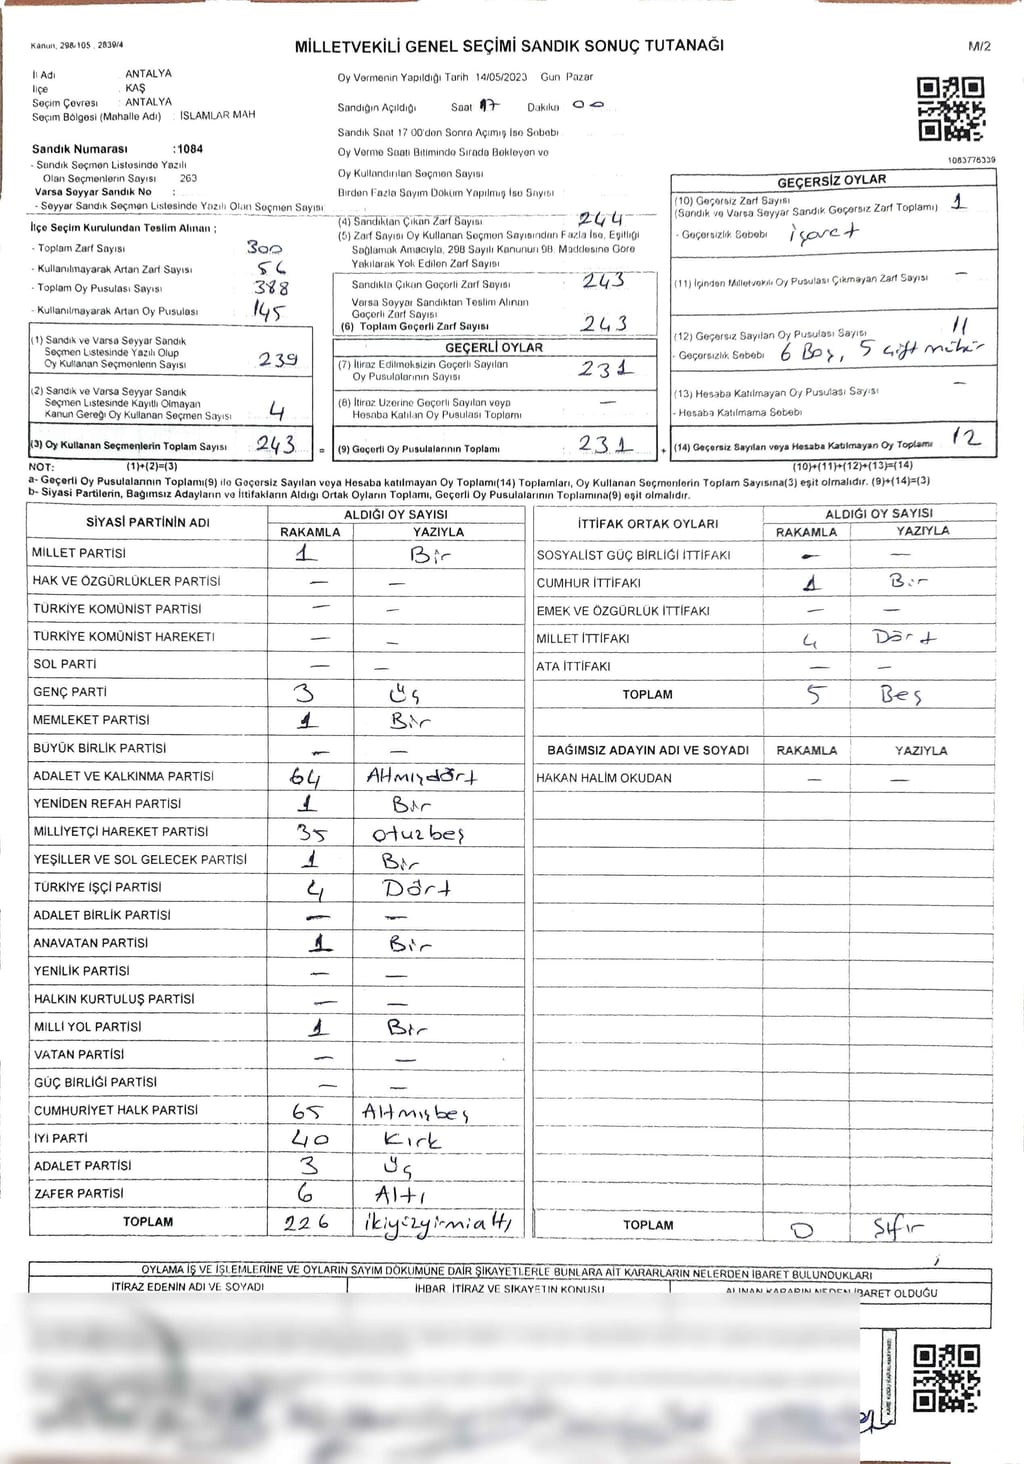 Kanun, 298-105, 2839/4
MİLLETVEKİLİ GENEL SEÇİMİ SANDIK SONUÇ TUTANAĞI
M/2
İl Adı ANTALYA
İlçe KAŞ
Seçim Çevresi : ANTALYA
Seçim Bölgesi (Mahalle Adı) : İSLAMLAR MAH
Sandık Numarası :1084
- Sandık Seçmen Listesinde Yazılı
Olan Seçmenlerin Sayısı 263
Varsa Seyyar Sandık No :
- Seyyar Sandık Seçmen Listesinde Yazılı Olan Seçmen Sayısı
Oy Vermenin Yapıldığı Tarih 14/05/2023 Gün Pazar
Sandığın Açıldığı Saat 17 Dakika 00
Sandık Saat 17 00'den Sonra Açımış İse Sebebi
Oy Verme Saati Bitiminde Sırada Bekleyen ve
Oy Kullandırılan Seçmen Sayısı
Birden Fazla Sayım Döküm Yapılmış İse Sayısı
1083776339
İlçe Seçim Kurulundan Teslim Alınan ;
- Toplam Zarf Sayısı 300
- Kullanılmayarak Artan Zarf Sayısı 56
- Toplam Oy Pusulası Sayısı 388
- Kullanılmayarak Artan Oy Pusulası 145
(1) Sandık ve Varsa Seyyar Sandık
Seçmen Listesinde Yazılı Olup
Oy Kullanan Seçmenlerin Sayısı 239
(2) Sandık ve Varsa Seyyar Sandık
Seçmen Listesinde Kayıtlı Olmayan
Kanun Gereği Oy Kullanan Seçmen Sayısı 4
(3) Oy Kullanan Seçmenlerin Toplam Sayısı 243 =
(4) Sandıktan Çıkan Zarf Sayısı 244
(5) Zarf Sayısı Oy Kullanan Seçmen Sayısından Fazla İse, Eşitliği
Sağlamak Amacıyla, 298 Sayılı Kanunun 98. Maddesine Göre
Yakılarak Yok Edilen Zarf Sayısı
Sandıkta Çıkan Geçerli Zarf Sayısı 243
Varsa Seyyar Sandıktan Teslim Alınan
Geçerli Zarf Sayısı
(6) Toplam Geçerli Zarf Sayısı 243
GEÇERLİ OYLAR
(7) İtiraz Edilmeksizin Geçerli Sayılan
Oy Pusulalarının Sayısı 231
(8) İtiraz Üzerine Geçerli Sayılan veya
Hesaba Katılan Oy Pusulası Toplamı —
(9) Geçerli Oy Pusulalarının Toplamı 231 +
GEÇERSİZ OYLAR
(10) Geçersiz Zarf Sayısı 1
(Sandık ve Varsa Seyyar Sandık Geçersiz Zarf Toplamı)
- Geçersizlik Sebebi işaret
(11) İçinden Milletvekili Oy Pusulası Çıkmayan Zarf Sayısı —
(12) Geçersiz Sayılan Oy Pusulası Sayısı 11
- Geçersizlik Sebebi 6 Boş, 5 çift mühür
(13) Hesaba Katılmayan Oy Pusulası Sayısı —
- Hesaba Katılmama Sebebi
(14) Geçersiz Sayılan veya Hesaba Katılmayan Oy Toplamı 12
NOT: (1)+(2)=(3) (10)+(11)+(12)+(13)=(14)
a- Geçerli Oy Pusulalarının Toplamı(9) ile Geçersiz Sayılan veya Hesaba katılmayan Oy Toplamı(14) Toplamları, Oy Kullanan Seçmenlerin Toplam Sayısına(3) eşit olmalıdır. (9)+(14)=(3)
b- Siyasi Partilerin, Bağımsız Adayların ve İttifakların Aldığı Ortak Oyların Toplamı, Geçerli Oy Pusulalarının Toplamına(9) eşit olmalıdır.
SİYASİ PARTİNİN ADI ALDIĞI OY SAYISI
RAKAMLA YAZIYLA
MİLLET PARTİSİ 1 Bir
HAK VE ÖZGÜRLÜKLER PARTİSİ — —
TÜRKİYE KOMÜNİST PARTİSİ — —
TÜRKİYE KOMÜNİST HAREKETİ — —
SOL PARTİ — —
GENÇ PARTİ 3 üç
MEMLEKET PARTİSİ 1 Bir
BÜYÜK BİRLİK PARTİSİ — —
ADALET VE KALKINMA PARTİSİ 64 Altmışdört
YENİDEN REFAH PARTİSİ 1 Bir
MİLLİYETÇİ HAREKET PARTİSİ 35 otuzbeş
YEŞİLLER VE SOL GELECEK PARTİSİ 1 Bir
TÜRKİYE İŞÇİ PARTİSİ 4 Dört
ADALET BİRLİK PARTİSİ — —
ANAVATAN PARTİSİ 1 Bir
YENİLİK PARTİSİ — —
HALKIN KURTULUŞ PARTİSİ — —
MİLLİ YOL PARTİSİ 1 Bir
VATAN PARTİSİ — —
GÜÇ BİRLİĞİ PARTİSİ — —
CUMHURİYET HALK PARTİSİ 65 Altmışbeş
İYİ PARTİ 40 Kırk
ADALET PARTİSİ 3 üç
ZAFER PARTİSİ 6 Altı
TOPLAM 226 ikiyüzyirmialtı
İTTİFAK ORTAK OYLARI ALDIĞI OY SAYISI
RAKAMLA YAZIYLA
SOSYALİST GÜÇ BİRLİĞİ İTTİFAKI — —
CUMHUR İTTİFAKI 1 Bir
EMEK VE ÖZGÜRLÜK İTTİFAKI — —
MİLLET İTTİFAKI 4 Dört
ATA İTTİFAKI — —
TOPLAM 5 Beş
BAĞIMSIZ ADAYIN ADI VE SOYADI RAKAMLA YAZIYLA
HAKAN HALİM OKUDAN — —
TOPLAM 0 Sıfır
OYLAMA İŞ VE İŞLEMLERİNE VE OYLARIN SAYIM DÖKÜMÜNE DAİR ŞİKAYETLERLE BUNLARA AİT KARARLARIN NELERDEN İBARET BULUNDUKLARI
İTİRAZ EDENİN ADI VE SOYADI İHBAR, İTİRAZ VE ŞİKAYETİN KONUSU ALINAN KARARIN NEDEN İBARET OLDUĞU